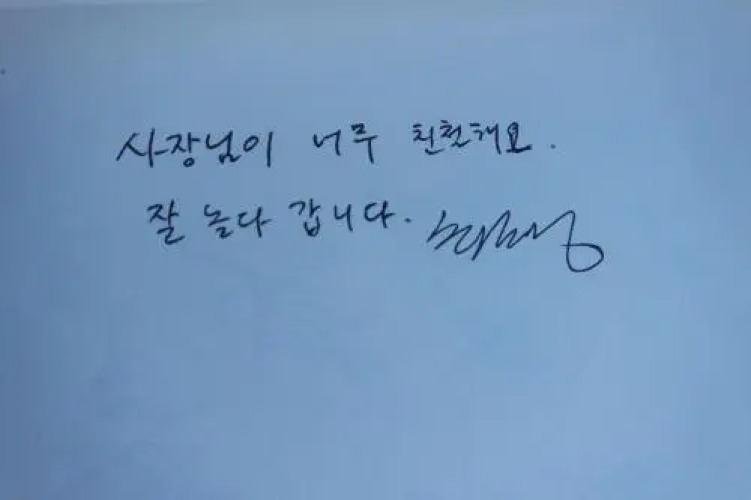 사장님이 너무 친철해요.
잘 놀다 갑니다.